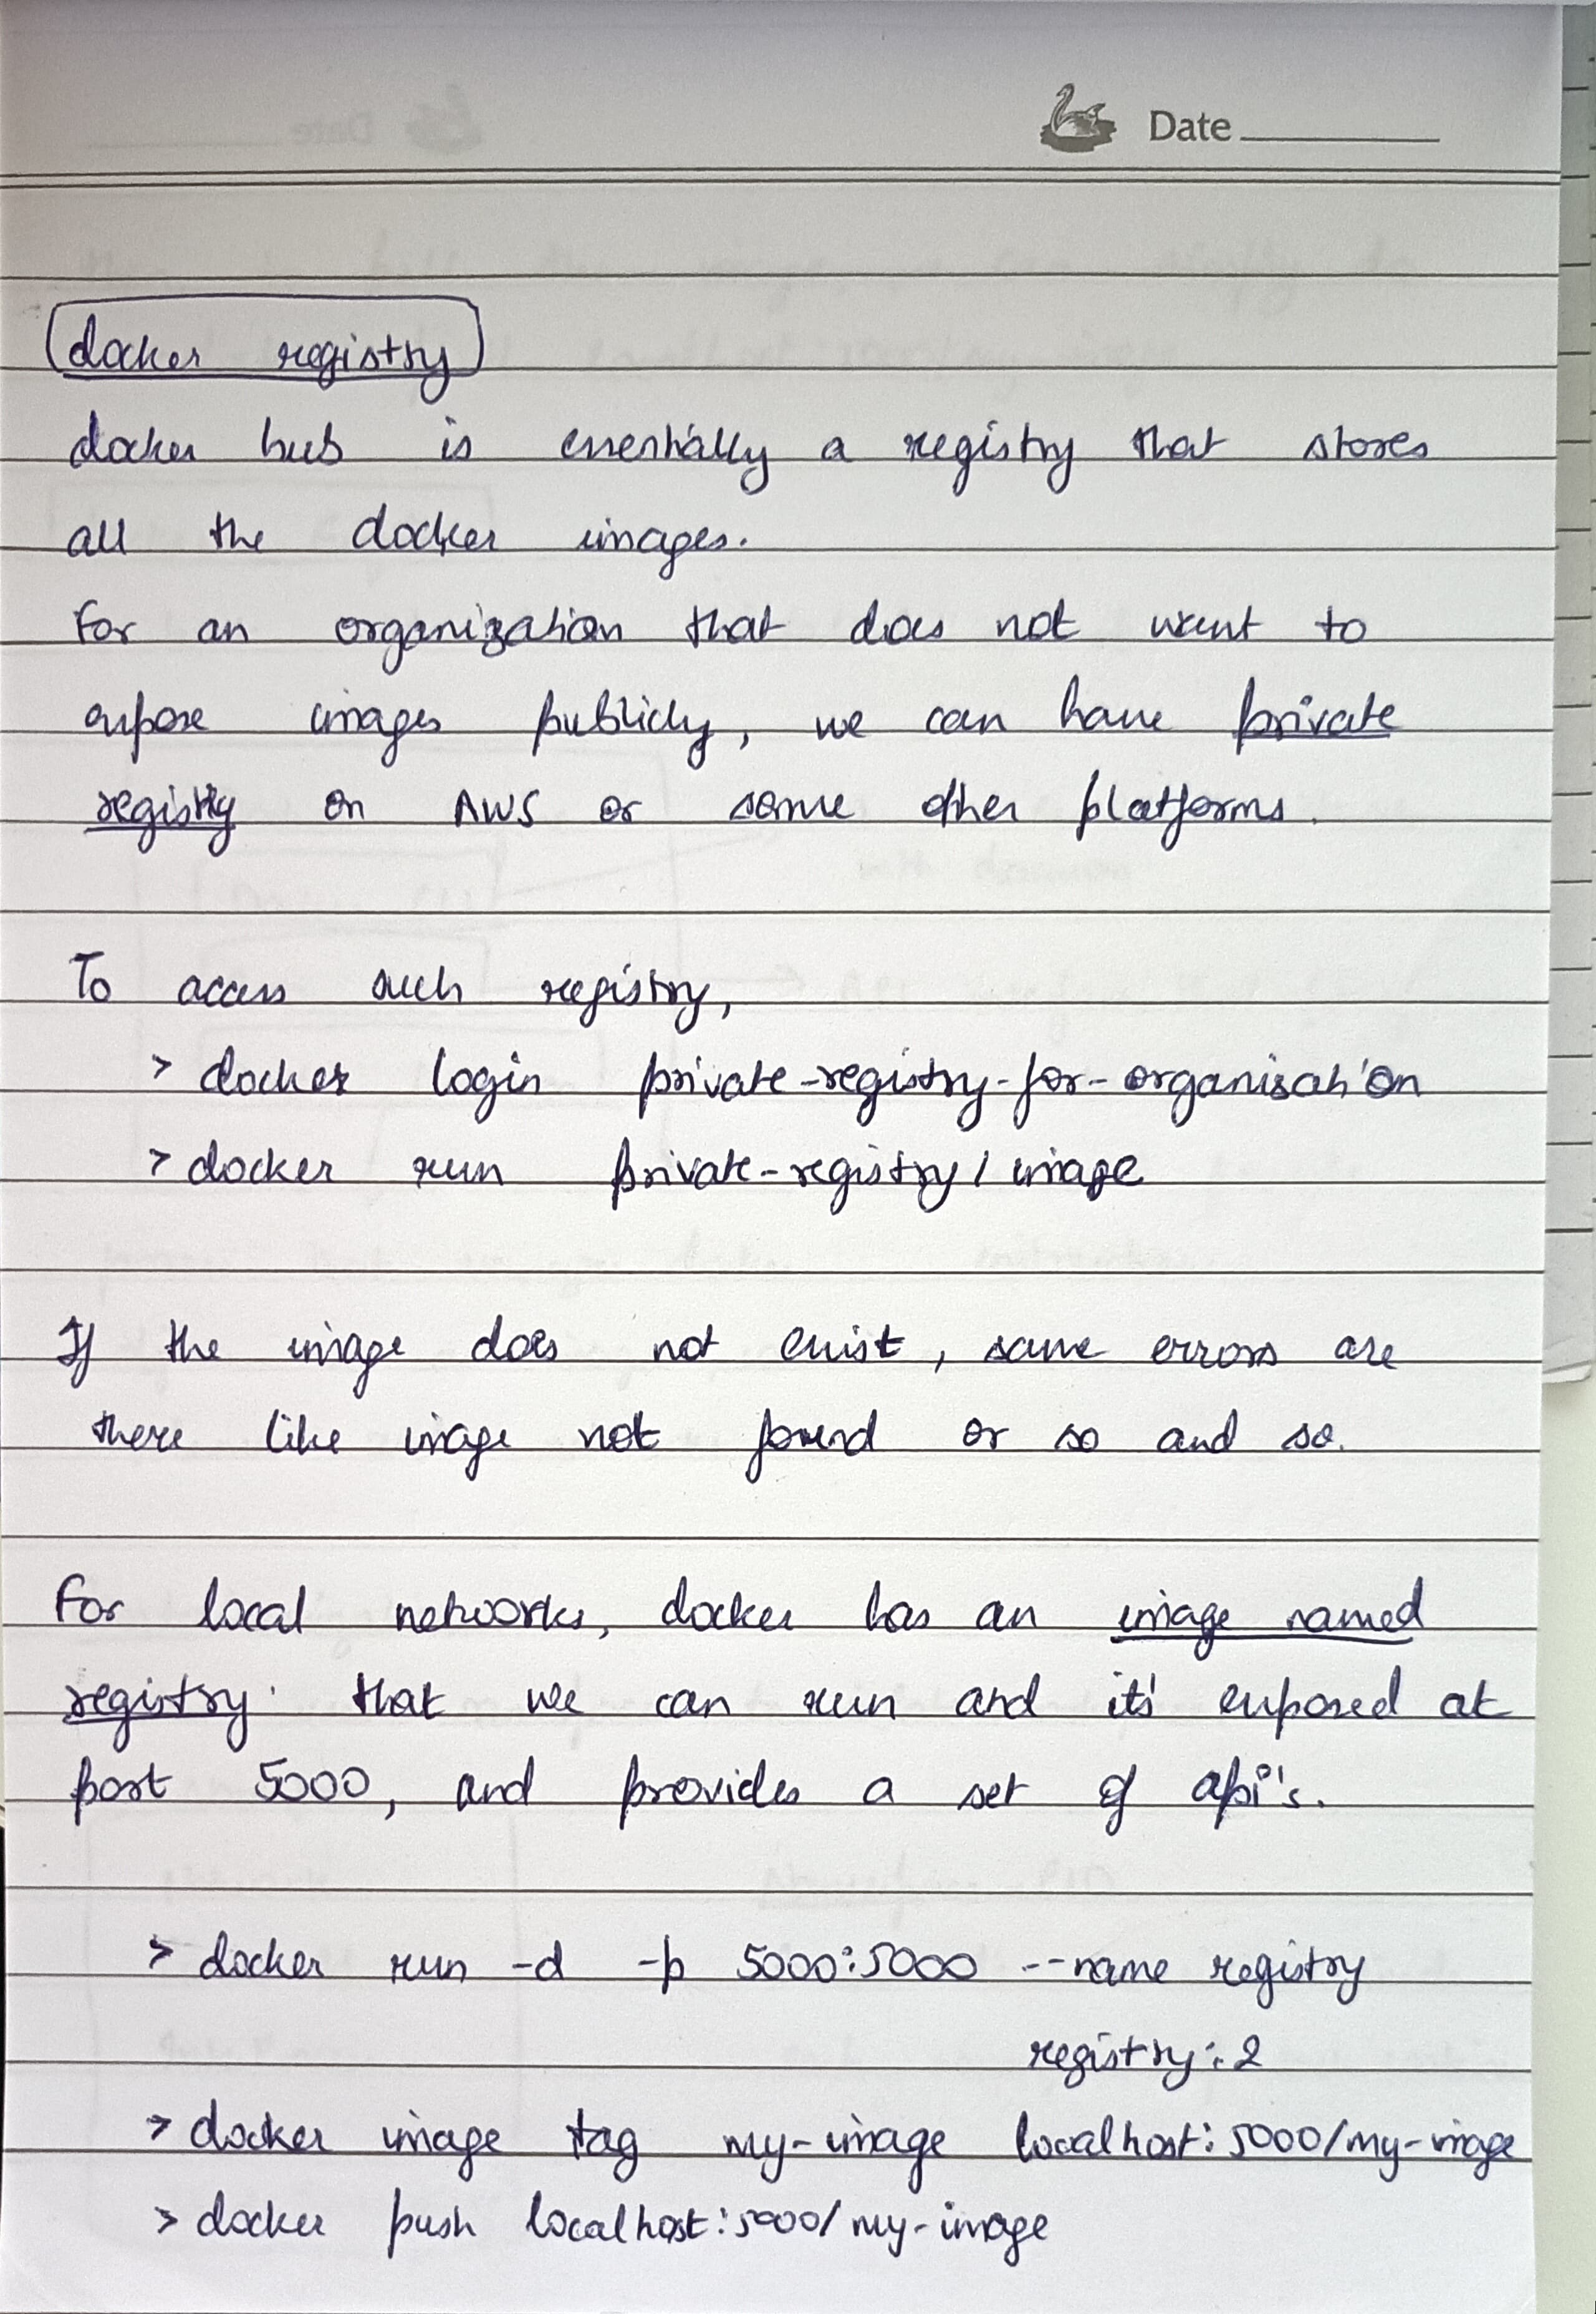 Date
docker registry
docker hub is essentially a registry that stores
all the docker images.
For an organization that does not want to
expose images publicly, we can have private
registry on AWS or some other platforms.
To access such registry,
> docker login private-registry-for-organisation
> docker run private-registry/image
If the image does not exist, some errors are
there like image not found or so and so.
For local networks, docker has an image named
registry that we can run and it's exposed at
port 5000, and provides a set of api's.
> docker run -d -p 5000:5000 --name registry
registry:2
> docker image tag my-image localhost:5000/my-image
> docker push localhost:5000/my-image